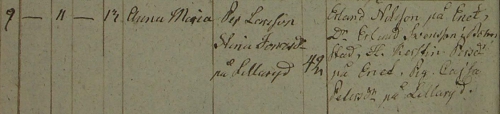 9 — 11 — 13. Anna Maria
Per Larsson
Stina Jonsdr
på Lillaryd
42
Erland Nilsson på Ened,
Dr. Erlund Svensson i
stad, H. Kerstin Persdr
på Ened. Pig. Cajsa
Petersdr på Lillaryd.